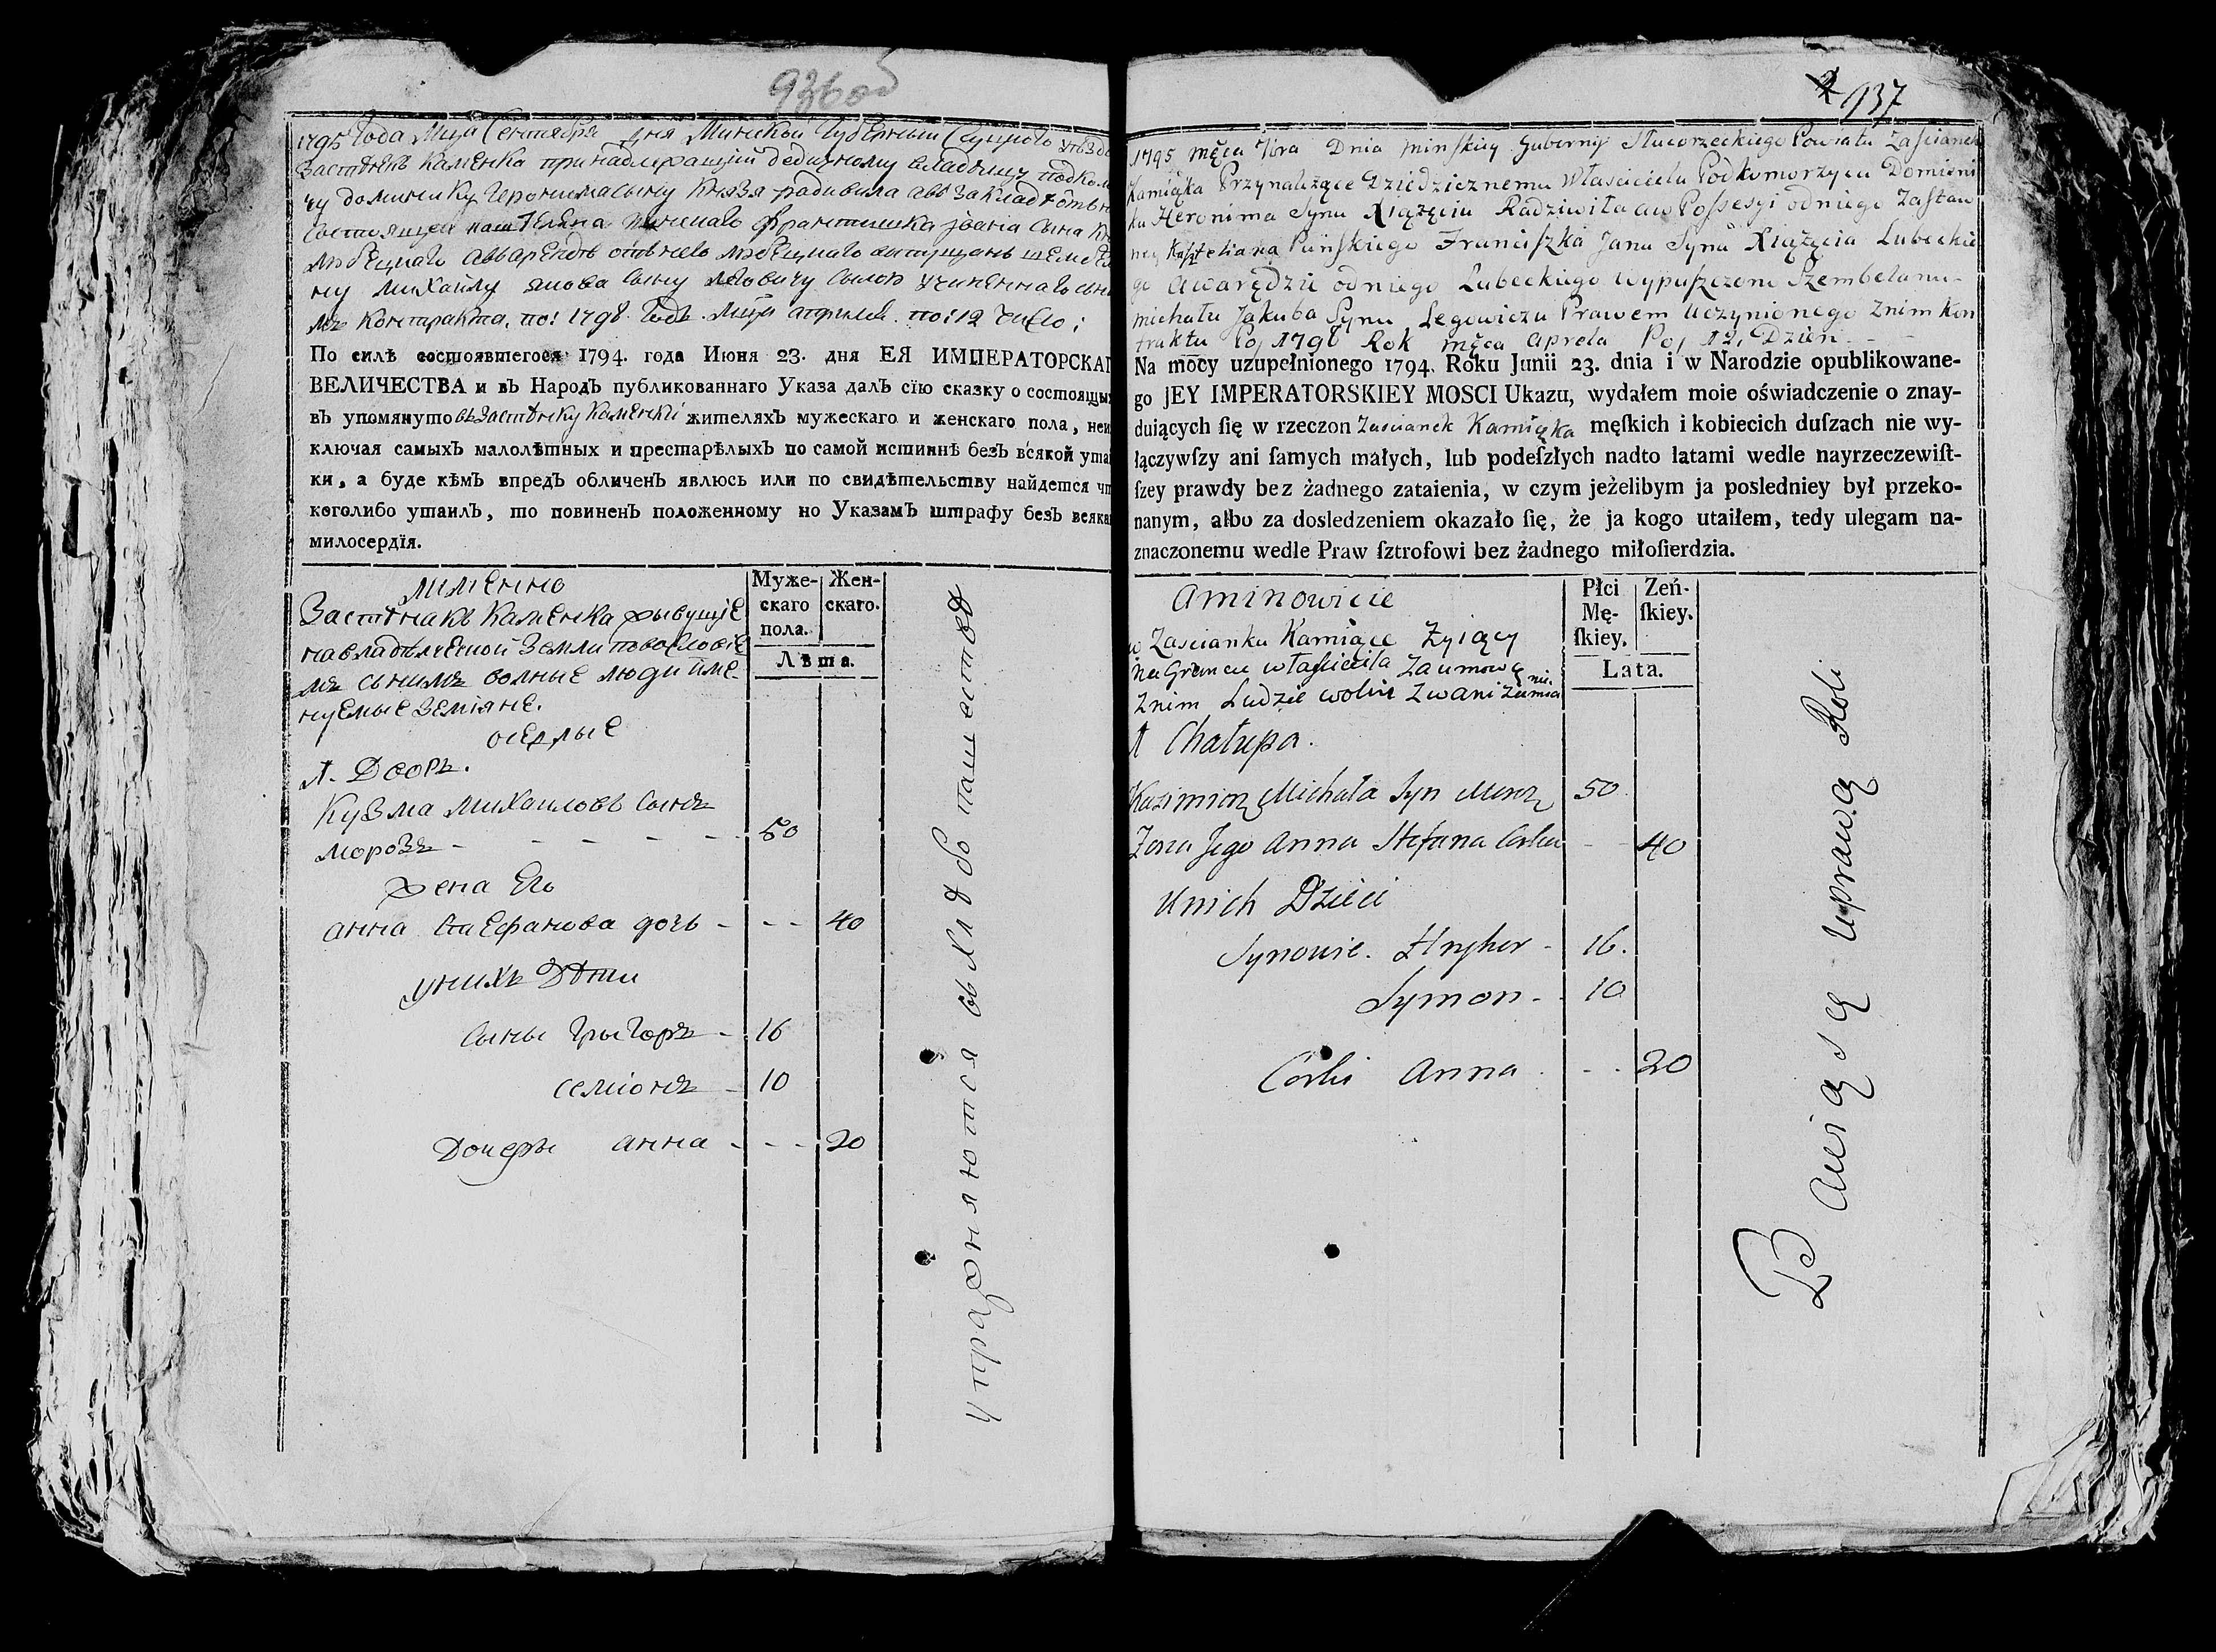 936об
1795 Года Мца Сентября дня Минской Губернии Слуцкого уезда
Застѣнекъ Каменка принадлежащiй дедичному владѣльцу подком
чу доминику Геронима сыну Князя радивила
Состоящей Франтишка Iвана сына
ну михайлу якова сыну леговичу силою учиненнаго
Контракта. по: 1798 Годъ. Мца априля. по: 12 число:
По силѣ состоявшегося 1794. года Июня 23. дня ЕЯ ИМПЕРАТОРСКАГ
ВЕЛИЧЕСТВА и въ Народъ публикованнаго Указа далъ сїю сказку о состоящих
въ упомянуто въ Застѣнку Каменки жителяхъ мужескаго и женскаго пола, неи
ключая самыхъ малолѣтныхъ и престарѣлыхъ по самой истиннѣ безъ всякой ута
ки, а буде кѣмъ впредъ обличенъ явлюсь или по свидѣтельству найдется чт
коголибо утаилъ, то повиненъ положенному по Указамъ штрафу безъ всяка
милосердїя.
имменно
Застѣнакъ Каменка живущiе
на владѣлческой Земли по условiе
мъ сънимъ волные люди име
нуемые Земiяне.
оседлые
1. Дворъ.
Муже-
скаго
пола.
Жен-
скаго.
Лѣта.
Кузма Михаиловъ Сынъ
Морозъ - - - - - 50
жена Его
анна Стефанова дочь - - - 40
унихъ Дѣти
Сыны Григоръ - 16
семiонъ - 10
Дочеры анна - - - 20
упражняются въ хлѣбопашествѣ
937
1795 męca 7bra Dnia Minskiey Gubernij Słuczeckiego Powiatu Zascianek
Kamiąka Przynależące Dziedzicznemu Włascicielu Podkomorzycu Domieni
ku Heronima Synu Xiążęciu Radziwiła aw Possesyi odniego Zastaw
ney Kasztelana Pinskiego Franciszka Jana Syna Xiążęcia Lubeckie
go Awarędzie odniego Lubeckiego wypuszczone Szembelanu-
michału Jakuba Synu Legowiczu Prawem Uczynionego Znim Kon
traktu Po, 1798 Rok męca aprela Po, 12, Dzien. - -
Na mocy uzupełnionego 1794. Roku Junii 23. dnia i w Narodzie opublikowane-
go jEY IMPERATORSKIEY MOSCI Ukazu, wydałem moie oświadczenie o znay-
duiących ſię w rzeczon Zascianek Kamiąka męſkich i kobiecich duſzach nie wy-
łączywſzy ani ſamych małych, lub podeſzłych nadto latami wedle nayrzeczewiſt-
ſzey prawdy bez żadnego zataienia, w czym jeżelibym ja posledniey był przeko-
nanym, albo za dosledzeniem okazało ſię, że ja kogo utaiłem, tedy ulegam na-
znaczonemu wedle Praw ſztrofowi bez żadnego miłoſierdzia.
aminowicie
w Zascianku Kamiące Żyiący
na Gruncie właściciela Zaumową
Znim Ludzie wolni Zwani Ziemianie
1 Chałupa.
Płci
Mę-
ſkiey.
Zeń-
ſkiey.
Lata.
Kazimierz Michała Syn Moroz 50
Żona Jego Anna Stefana Corka - - 40
Unich Dzieci
Synowie. Hryhor - 16.
Symon - 10
Corki Anna - - - 20
Bawią się Uprawą Roli